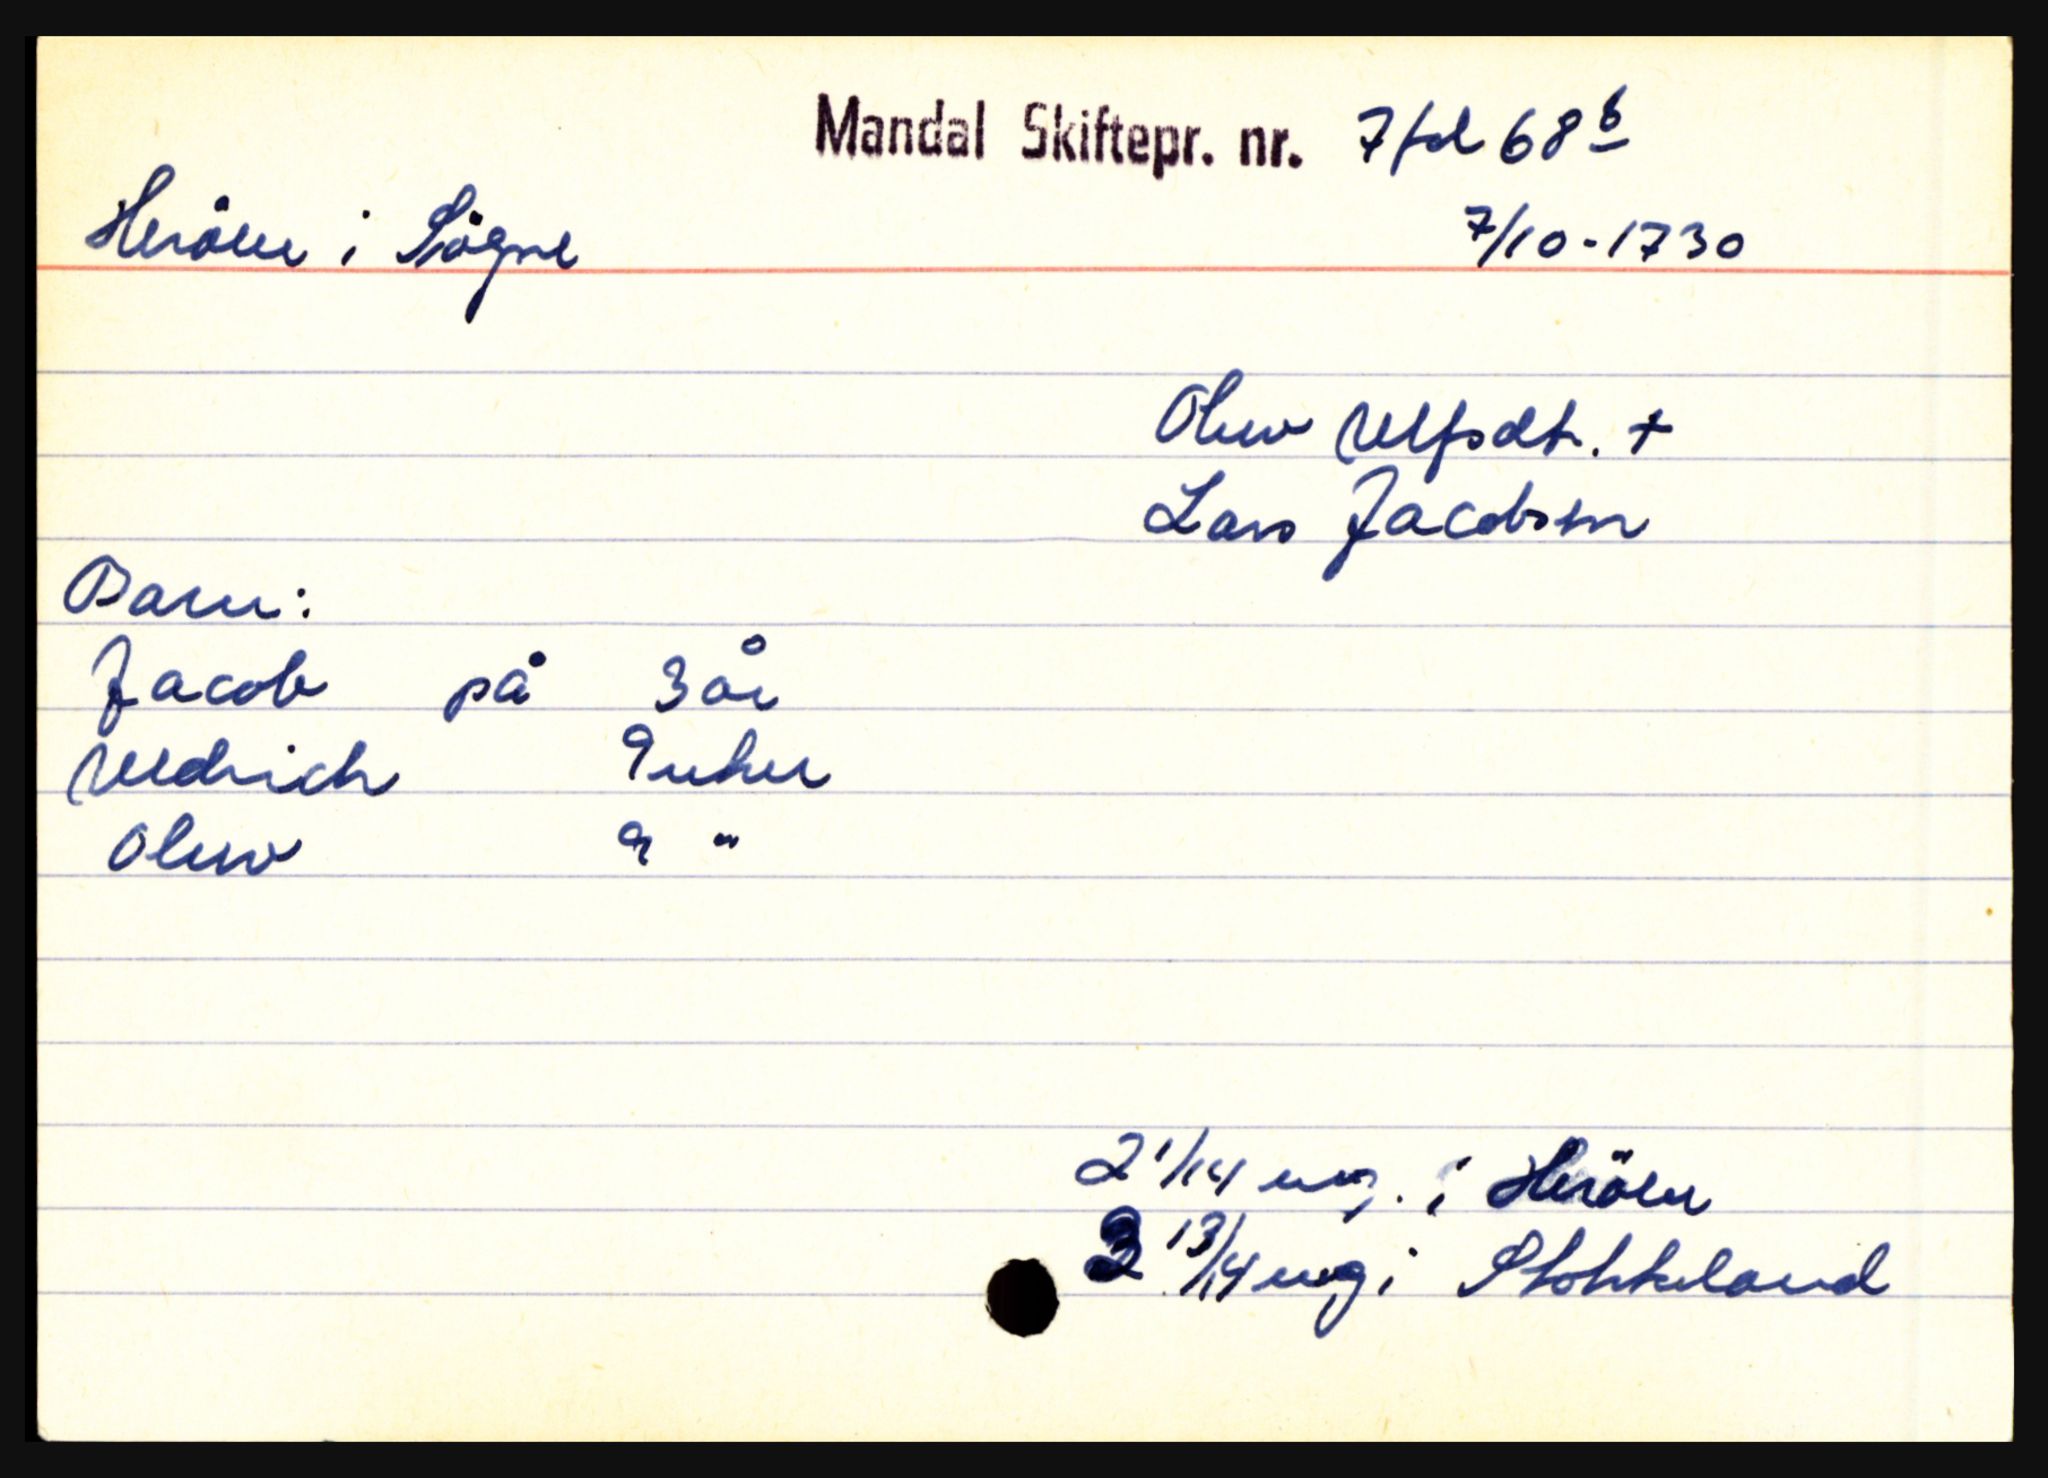 Mandal Skiftepr. nr. 7 fol 68 b
Heröen i Sögne 7/10-1730
Olew Ulfsdt. +
Lars Jacobsen
Barn:
Jacob på 3 år
Uldrich 9 uker
Olew 9 "
2 1/14 eng. i Heröen
3 13/14 eng i Stokkeland